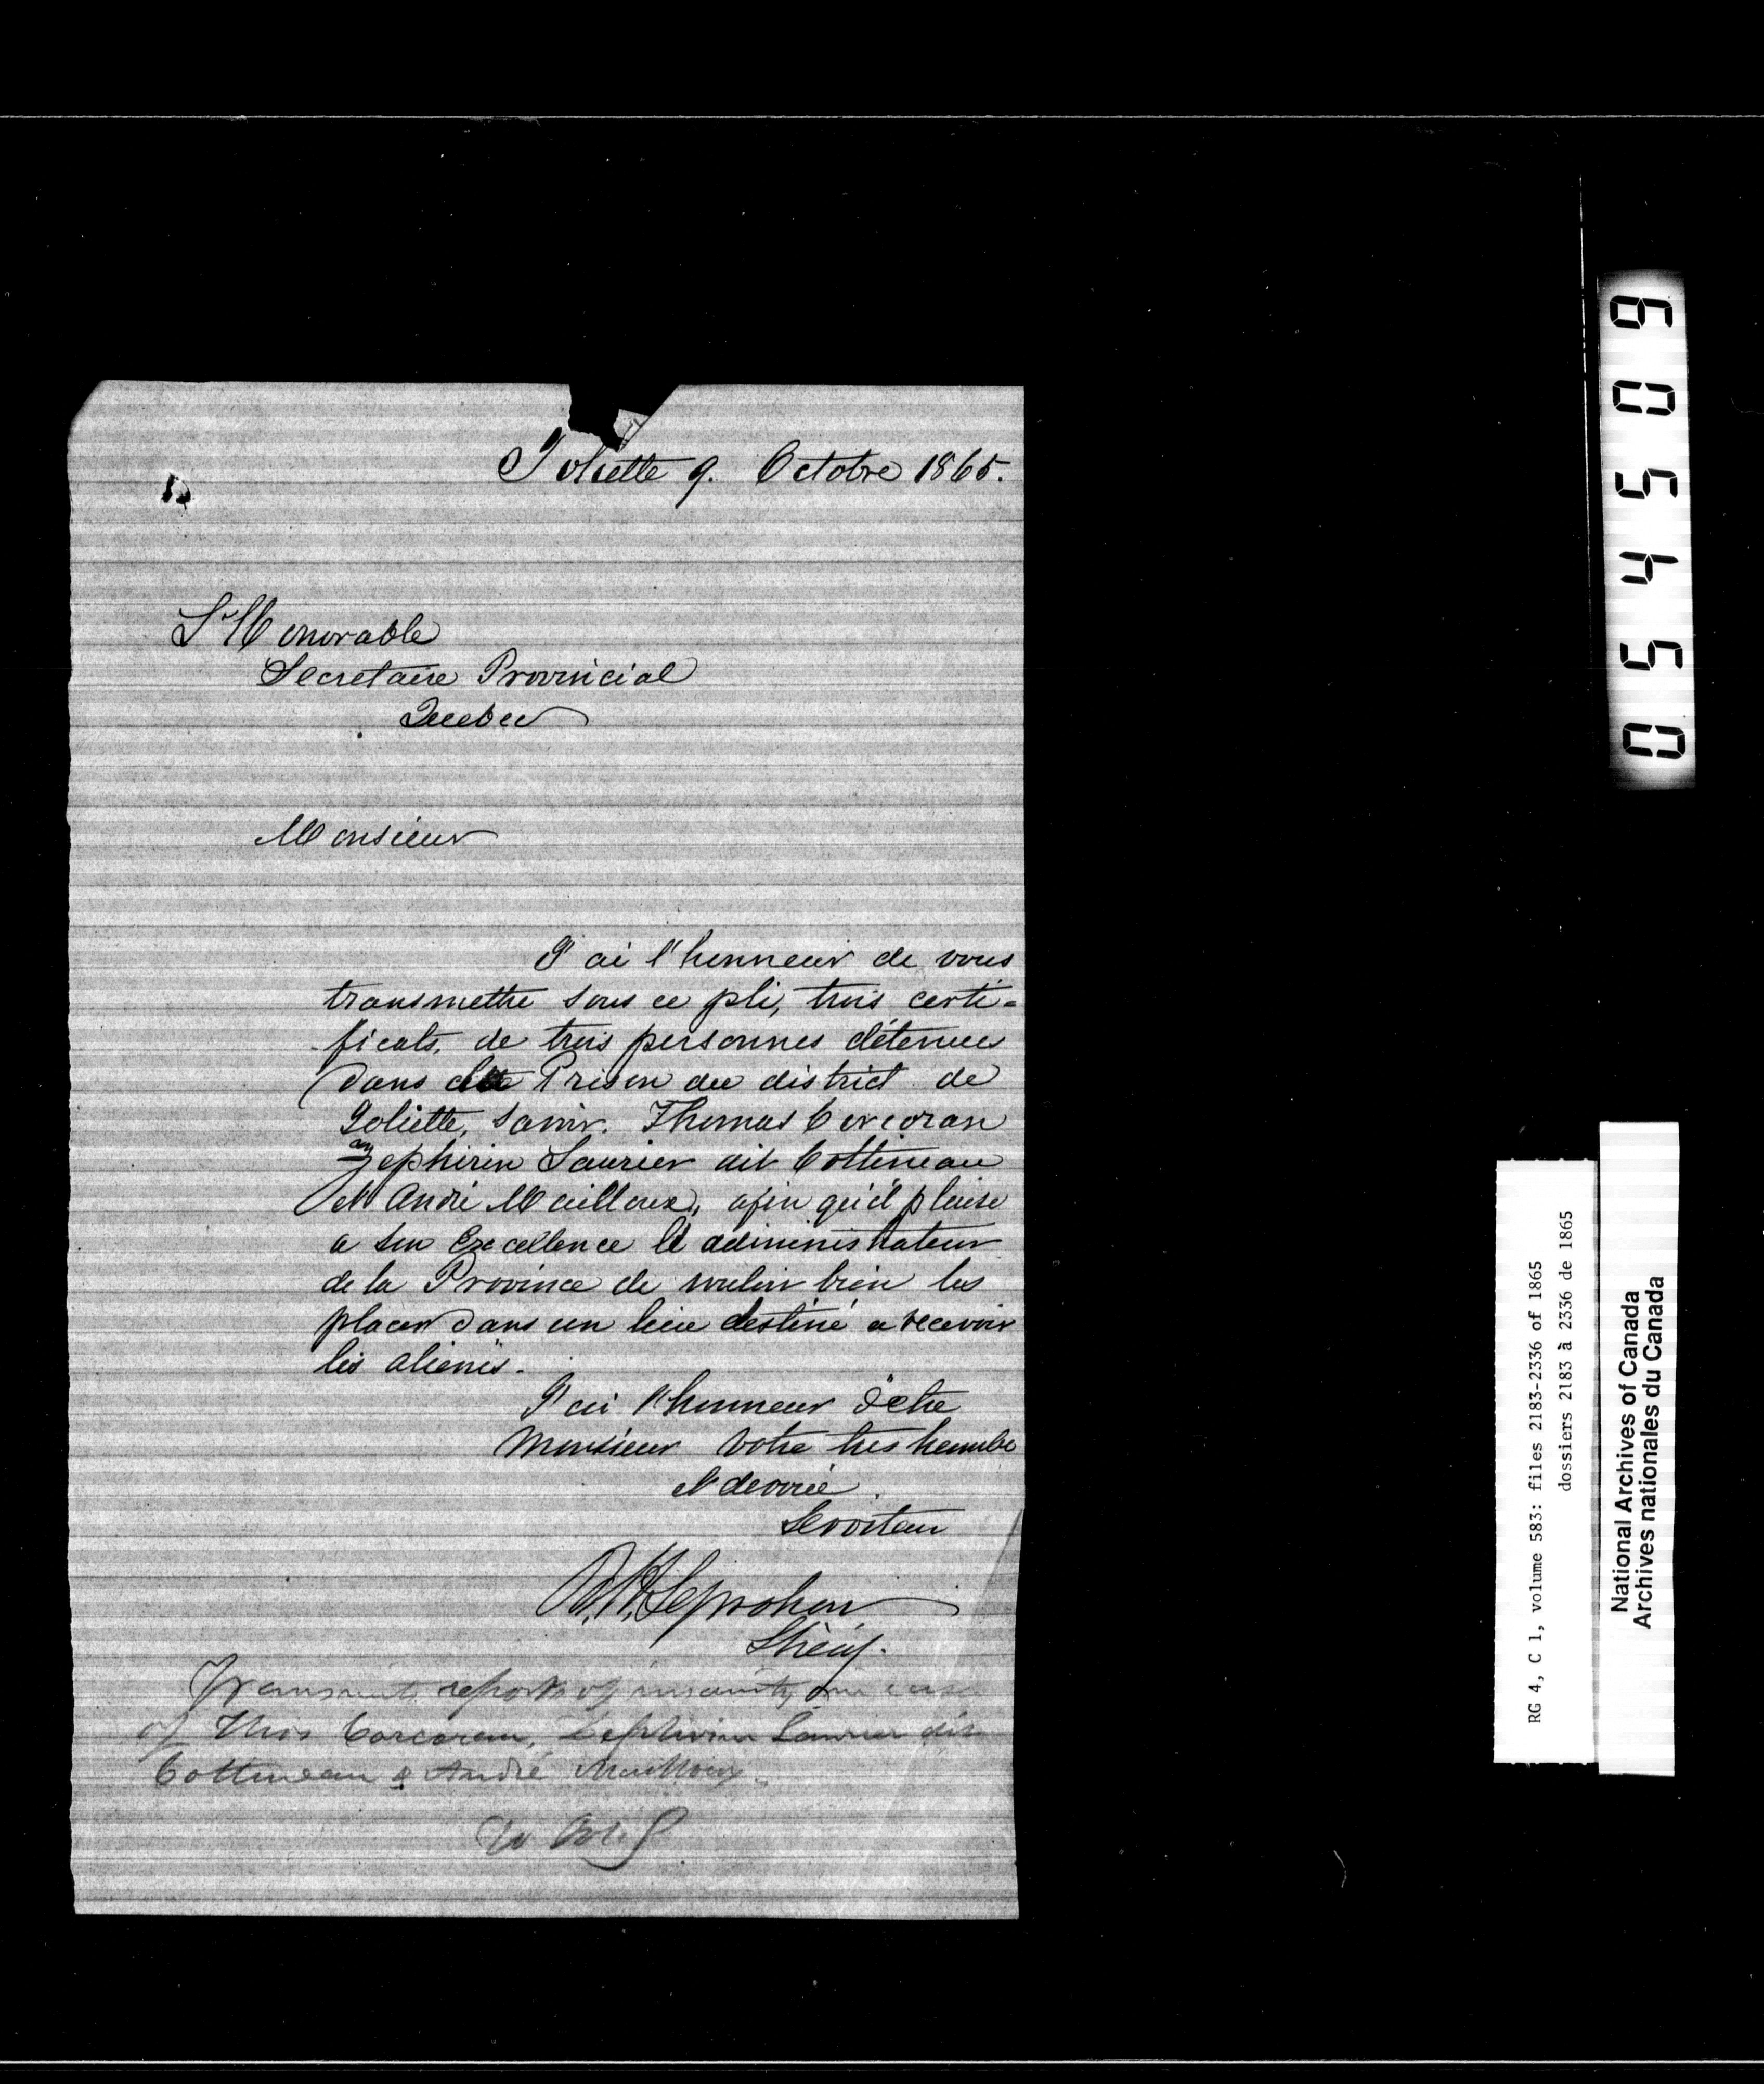 Joliette 9. Octobre 1865.
L'Honorable
Secretaire Provinicial
Quebec
Monsieur
J'ai l'honneur de vous
transmettre sous ce pli, trois certi=
ficats, de trois personnes détenues
dans la Prison du district de
Joliette, savoir. Thomas Corcoran
Zephirin Laurier dit Cottineau
et André Mailloux, afin qu'il plaise
a son Excellence l'administrateur
de la Province de vouloir bien les
placer dans un lieu destiné a recevoir
les aliénés.
J'ai l'honneur d'etre
Monsieur Votre tres humble
et devoué
Serviteur
Leprohon
Shérif.
Transmits reports of insanity in case
of Thos Corcoran, Zephirin Laurier dit
Cottineau & André Mailloux.
605450
RG 4, C 1, volume 583: files 2183-2336 of 1865
dossiers 2183 à 2336 de 1865
National Archives of Canada
Archives nationales du Canada